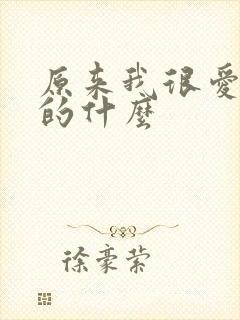 原来我很爱
的什麼
徐豪萦